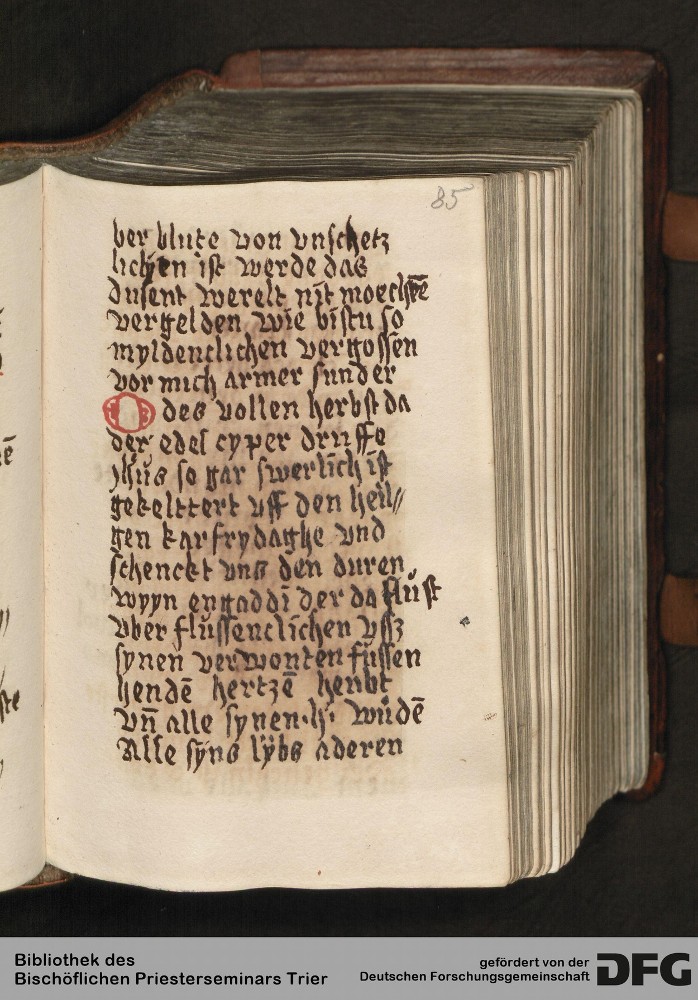 85
ber blute von vnschetz
lichen ist werde das
dusent werelt nit moechtē
vergelden wie bistu so
myldenclichen vergossen
vor mich armer sunder
O des vollen herbst da
der edel cyper druffe
jhūs so gar swerlich ist
gekelttert vff den heil//
gen karfrydaghe vnd
schenckt vns den duren
wyyn engaddi der da flúst
vber flússenclichen vsz
synen verwonten fússen
hendē hertzē heubt
vn̄ alle synen ·h· wūdē
Alle syns lybs aderen
Bibliothek des
Bischöflichen Priesterseminars Trier
gefördert von der
Deutschen Forschungsgemeinschaft DFG